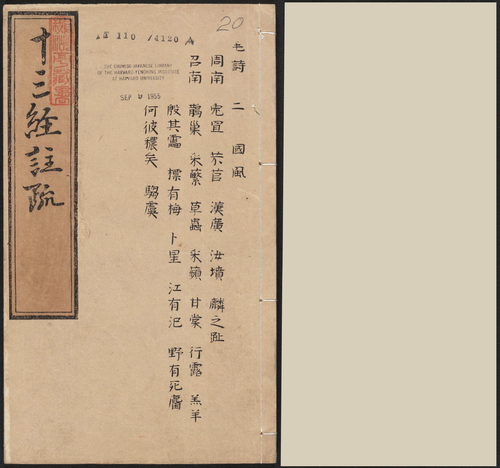 20
毛詩 二 國風
周南 兔罝 芣苢 漢廣 汝墳 麟之趾
召南 鵲巢 采蘩 草蟲 采蘋 甘棠 行露 羔羊
殷其靁 摽有梅 小星 江有汜 野有死麕
何彼襛矣 騶虞
110 /4120 A
THE CHINESE-JAPANESE LIBRARY
OF THE HARVARD-YENCHING INSTITUTE
AT HARVARD UNIVERSITY
SEP 9 1955
十三經註疏